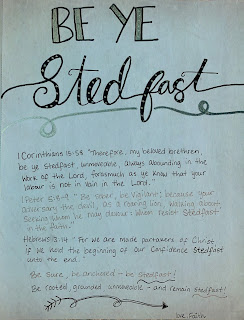 BE YE
Stedfast
1 Corinthians 15:58 "Therefore, my beloved brethren,
be ye stedfast, unmoveable, always abounding in the
work of the Lord, forasmuch as ye know that your
labour is not in vain in the Lord."
1 Peter 5:8-9 "Be sober, be vigilant; because your
adversary the devil, as a roaring lion, walking about,
seeking whom he may devour: whom resist stedfast
in the faith."
Hebrews 3:14 "For we are made partakers of Christ,
if we hold the beginning of our confidence stedfast
unto the end."
Be Sure, be anchored - be stedfast!
Be rooted, grounded, unmoveable - and remain stedfast!